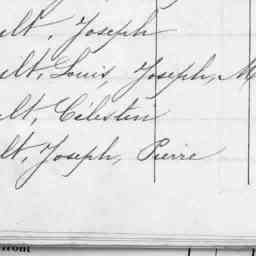 ult, Joseph
ult, Louis, Joseph, M
ult, Célestin
ult, Joseph, Pierre
front